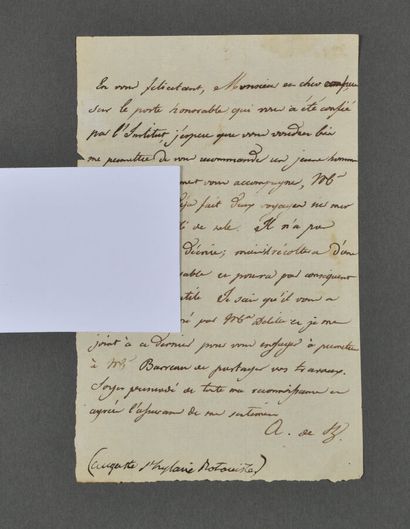 En vous félicitant, Monsieur et cher confrère
sur le poste honorable qui vous a été confié
par l'Institut, j'espère que vous voudrez bien
me permettre de vous recommander un jeune homme
vous accompagne, Mr
fait deux voyages en mer
de zèle. Il n'a pas
décrire; mais il récoltera d'une
ce pourra par conséquent
utile Je sais qu'il vous a
par Mr Delile et je me
joint à ce dernier pour vous engager à permettre
à Mr Barreau de partager vos travaux.
Soyez persuadé de toute ma reconnaissance et
agréez l'assurance de mes sentimens
A. de St h.
(Auguste St hylaire Botaniste)